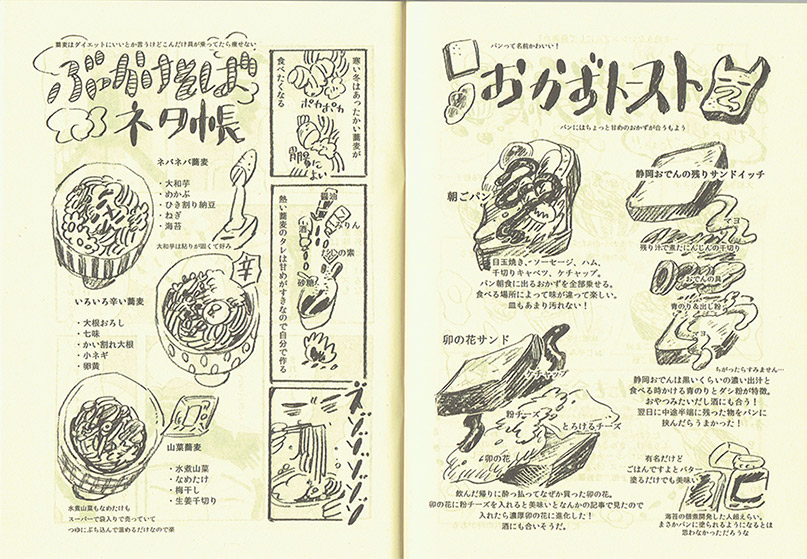 蕎麦はダイエットにいいとか言うけどこんだけ具が乗ってたら痩せない
ぶっかけそば
ネタ帳
ネバネバ蕎麦
・大和芋
・めかぶ
・ひき割り納豆
・ねぎ
・海苔
大和芋は粘りが固くて好み
いろいろ辛い蕎麦
・大根おろし
・七味
・かい割れ大根
・小ネギ
・卵黄
辛
山菜蕎麦
・水煮山菜
・なめたけ
・梅干し
・生姜千切り
水煮山菜もなめたけも
スーパーで袋入りで売っていて
つゆにぶち込んで温めるだけなので楽
寒い冬はあったかい蕎麦が
食べたくなる
ポカポカ
胃腸に
よい
熱い蕎麦のタレは甘めがすきなので自分で作る
醤油
みりん
酒
の素
砂糖
ズゾゾゾゾゾ
パンって名前かわいい！
おかずトースト
パンにはちょっと甘めのおかずが合うもよう
朝ごパン
目玉焼き、ソーセージ、ハム、
千切りキャベツ、ケチャップ。
パン朝食に出るおかずを全部乗せる。
食べる場所によって味が違って楽しい。
皿もあまり汚れない！
卯の花サンド
ケチャップ
粉チーズ
とろけるチーズ
卯の花
飲んだ帰りに酔っ払ってなぜか買った卯の花。
卯の花に粉チーズを入れると美味いとなんかの記事で見たので
入れたら濃厚卯の花に進化した！
酒にも合いそうだ。
静岡おでんの残りサンドイッチ
マヨ
残り汁で煮たにんじんの千切り
おでんの具
青のり＆出し粉
マヨ
ちがったらすみません…
静岡おでんは黒いくらいの濃い出汁と
食べる時かける青のりとダシ粉が特徴。
おやつみたいだし酒にも合う！
翌日に中途半端に残った物をパンに
挟んだらうまかった！
有名だけど
ごはんですよとバター
塗るだけでも美味い
海苔の佃煮開発した人超えらい。
まさかパンに塗られるようになるとは
思わなかっただろうな